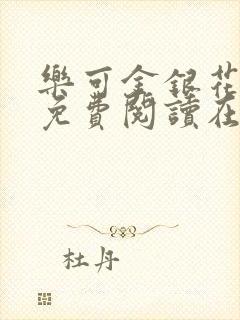 樂可金銀花
免費閱讀在
杜丹